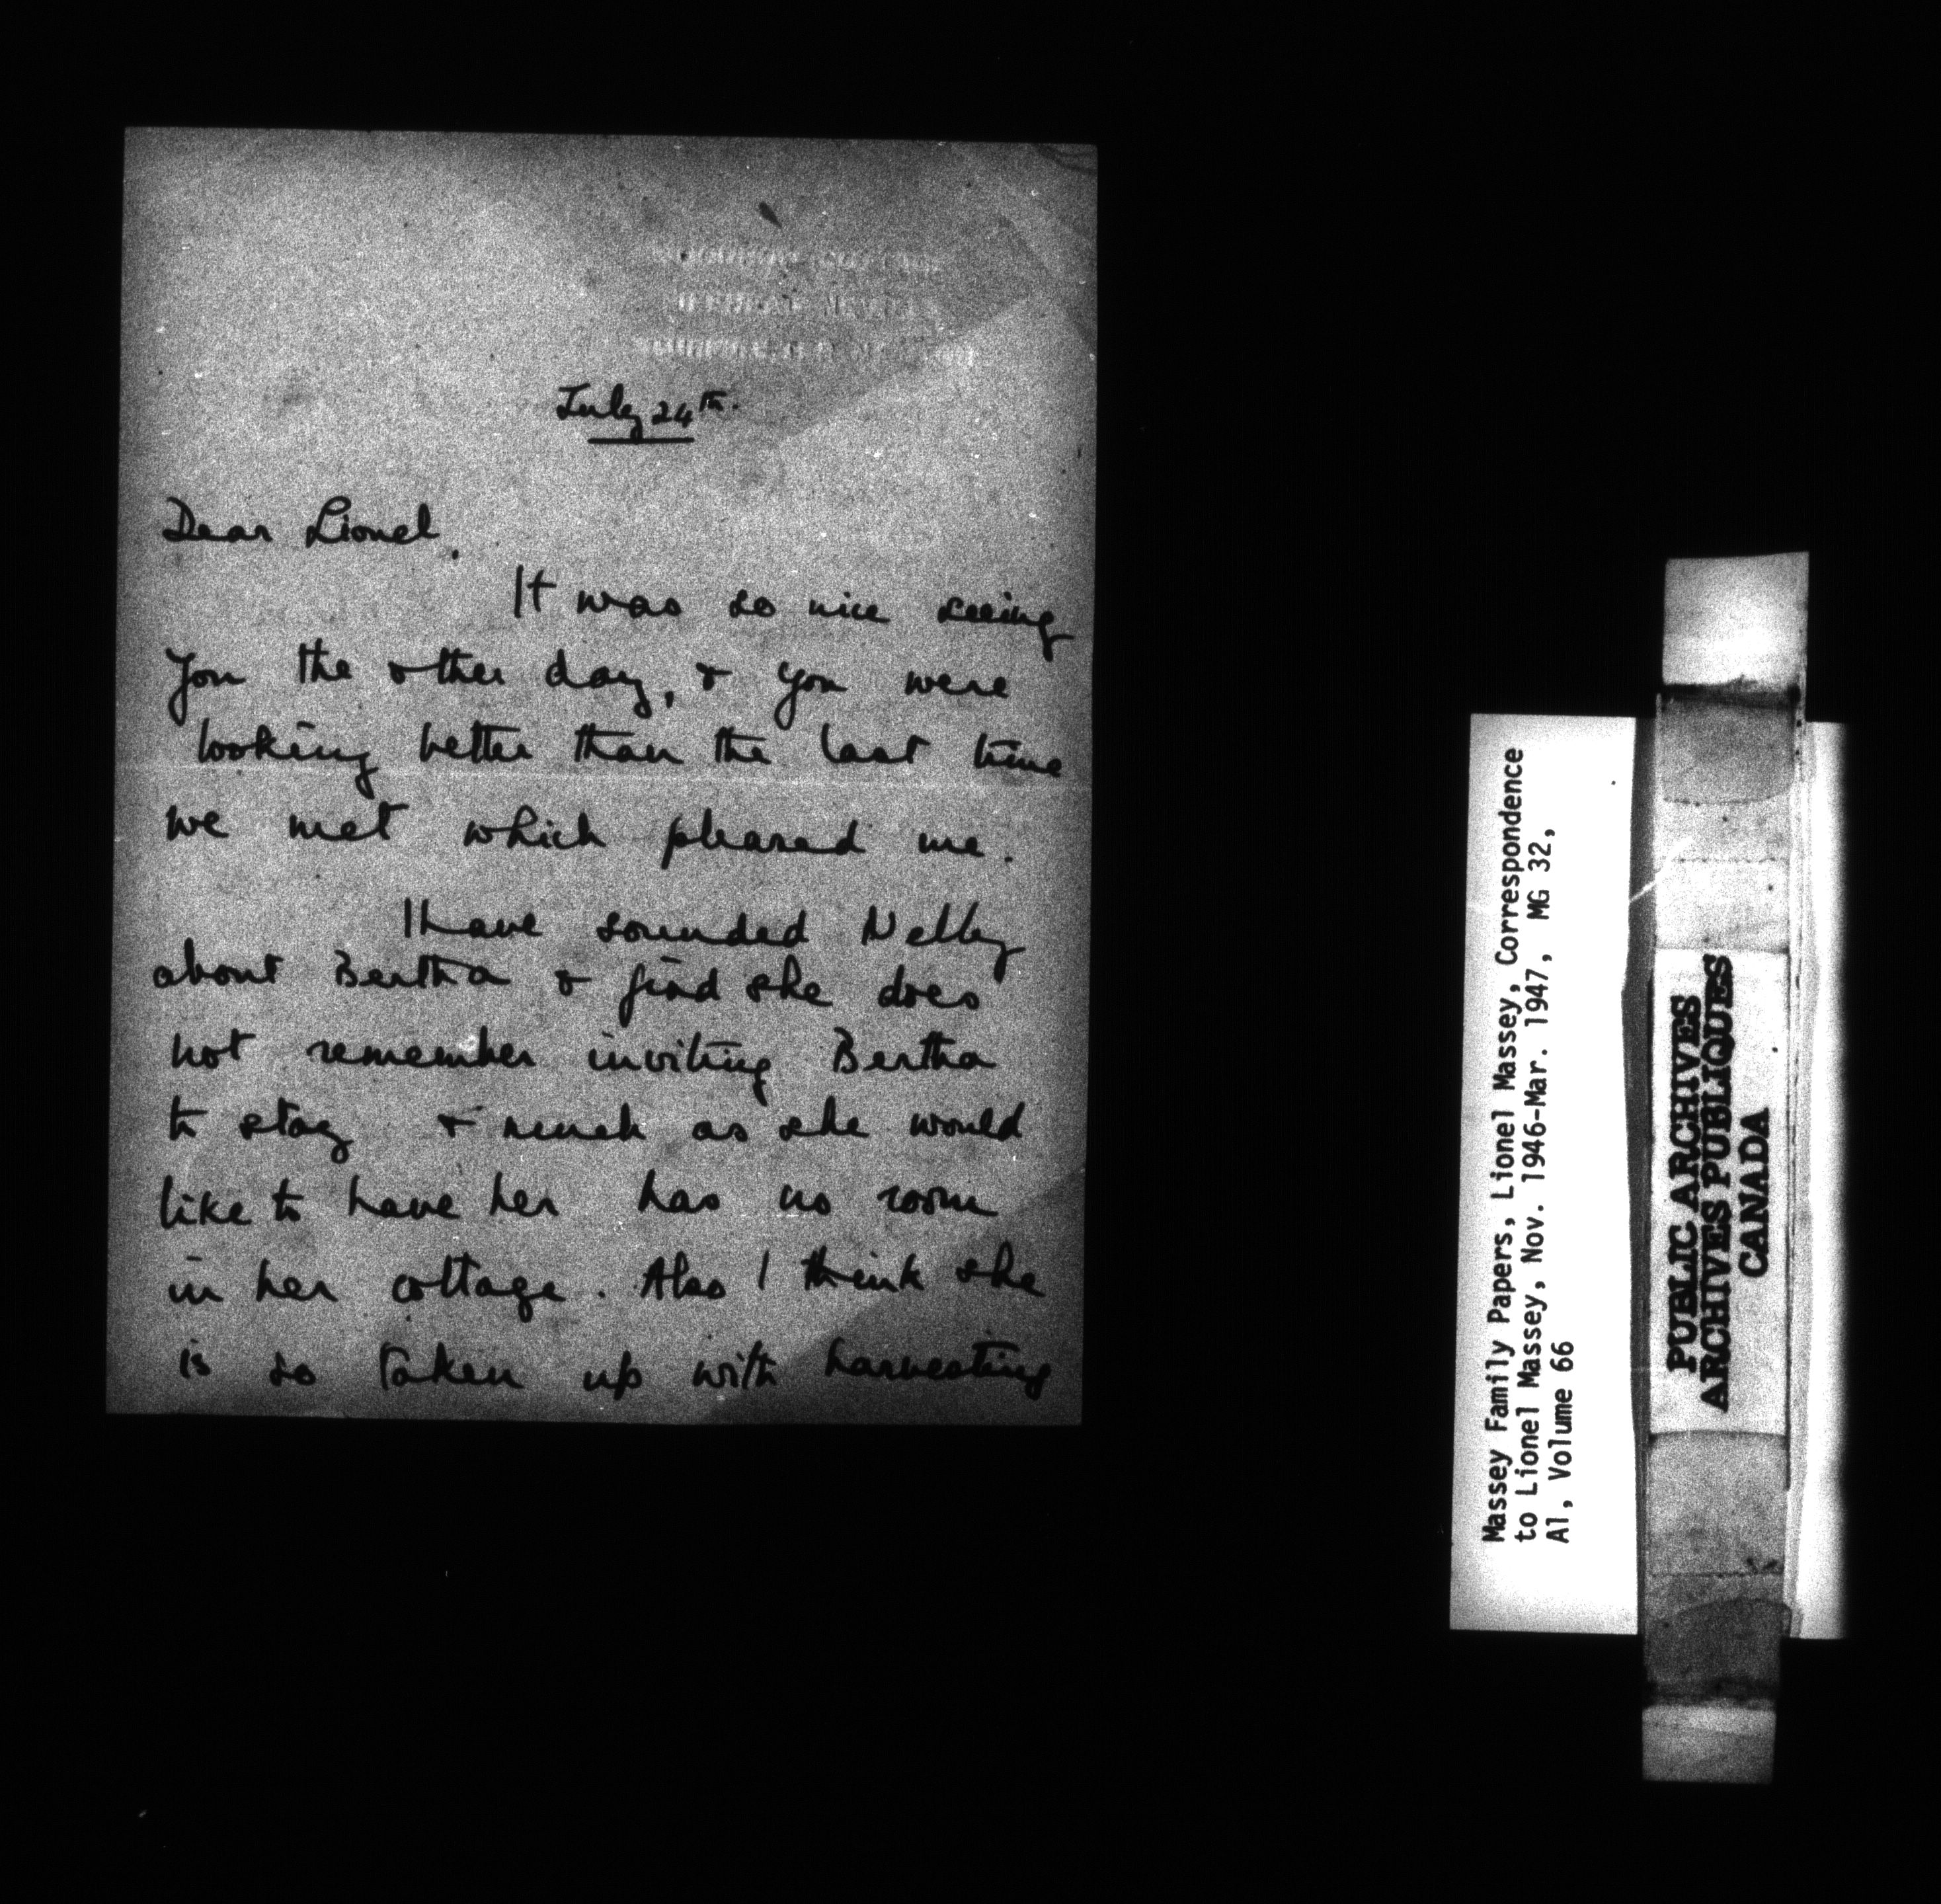 July 24th.
Dear Lionel,
It was so nice seeing
you the other day, & you were
looking better than the last time
we met which pleased me.
I have sounded Nelly
about Bertha & find she does
not remember inviting Bertha
to stay & much as she would
like to have her has no room
in her cottage. Also I think she
is so taken up with harvesting
Massey Family Papers, Lionel Massey, Correspondence
to Lionel Massey, Nov. 1946-Mar. 1947, MG 32,
A1, Volume 66
PUBLIC ARCHIVES
ARCHIVES PUBLIQUES
CANADA